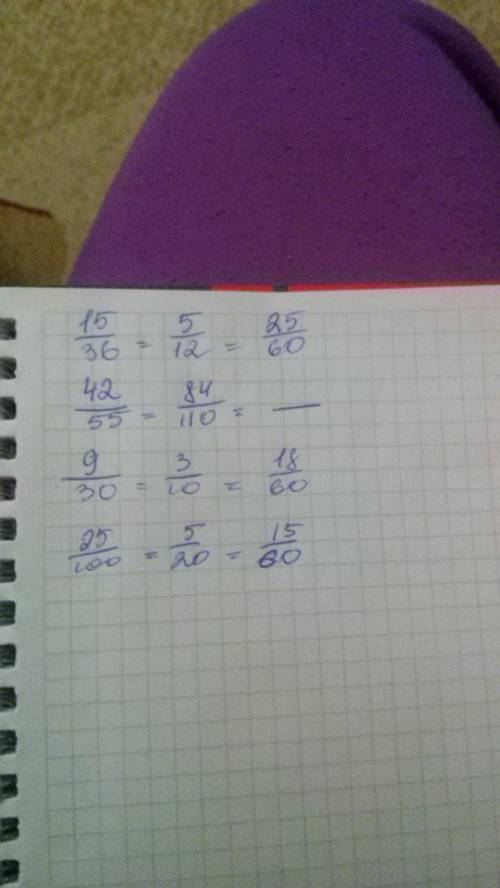 15/36 = 5/12 = 25/60
42/55 = 84/110 = —
9/30 = 3/10 = 18/60
25/100 = 5/20 = 15/60